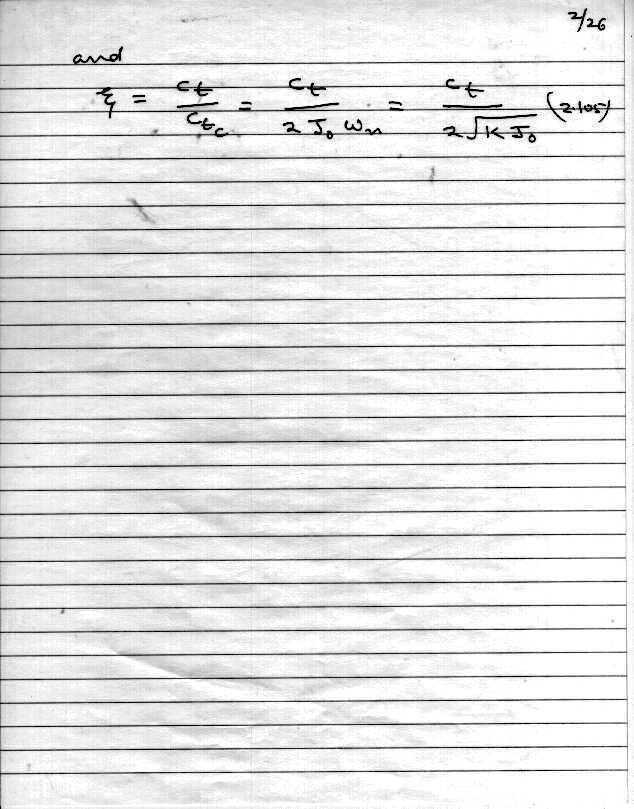 2/26
and
ξ = c_t / c_tc = c_t / 2 J₀ ωₙ = c_t / 2 √(K J₀) (2.105)